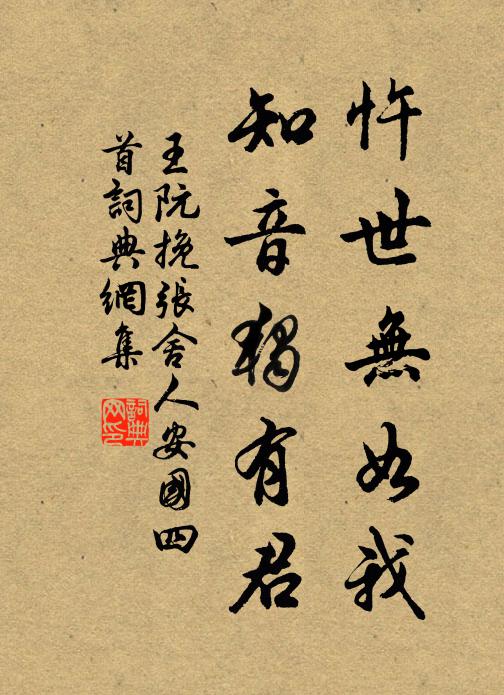 忤世無如我
知音獨有君
王阮挽張舍人安國四
首詞典網集
詞典网印